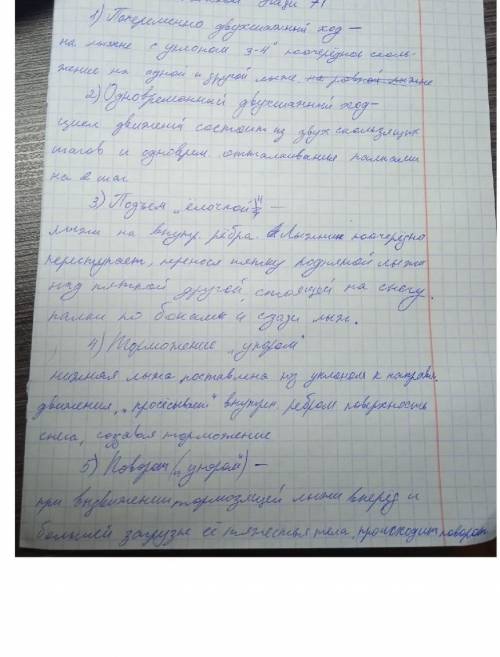 Гази 71
1) Попеременно двухшажный ход –
на лыжне с уклоном 3-4° поочерёдное сколь-
жение на одной и другой лыже на ровной лыжне
2) Одновременный двухшажный ход –
цикл движений состоит из двух скользящих
шагов и одноврем. отталкивания палками
на 2 шаг
3) Подъём "ёлочкой" –
лыжи на внутр. рёбра. Лыжник поочерёдно
переступает, перенося пятку поднятой лыжи
над пяткой другой, стоящей на снегу,
палки по бокам и сзади лыж.
4) Торможение "упором"
нижняя лыжа, поставлена из уклоном к направл.
движения, "просасывает" внутрен. ребром поверхность
снега, создавая торможение
5) Поворот ("упором") –
при выдвижении тормозящей лыжи вперёд и
большей загрузке её тяжестью тела, происходит поворот